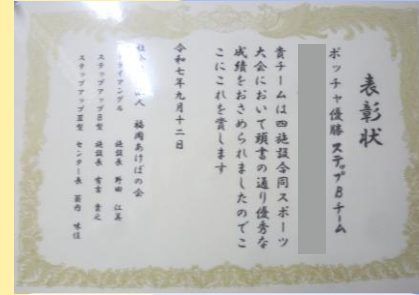 表彰状
ボッチャ優勝 ステップBチーム
貴チームは四施設合同スポーツ
大会において頭書の通り優秀な
成績をおさめられましたのでこ
こにこれを賞します
令和七年九月十二日
福岡あけぼの会
施設長 野田 江美
ステップアップB型 施設長
ステップアップⅢ型 センター長